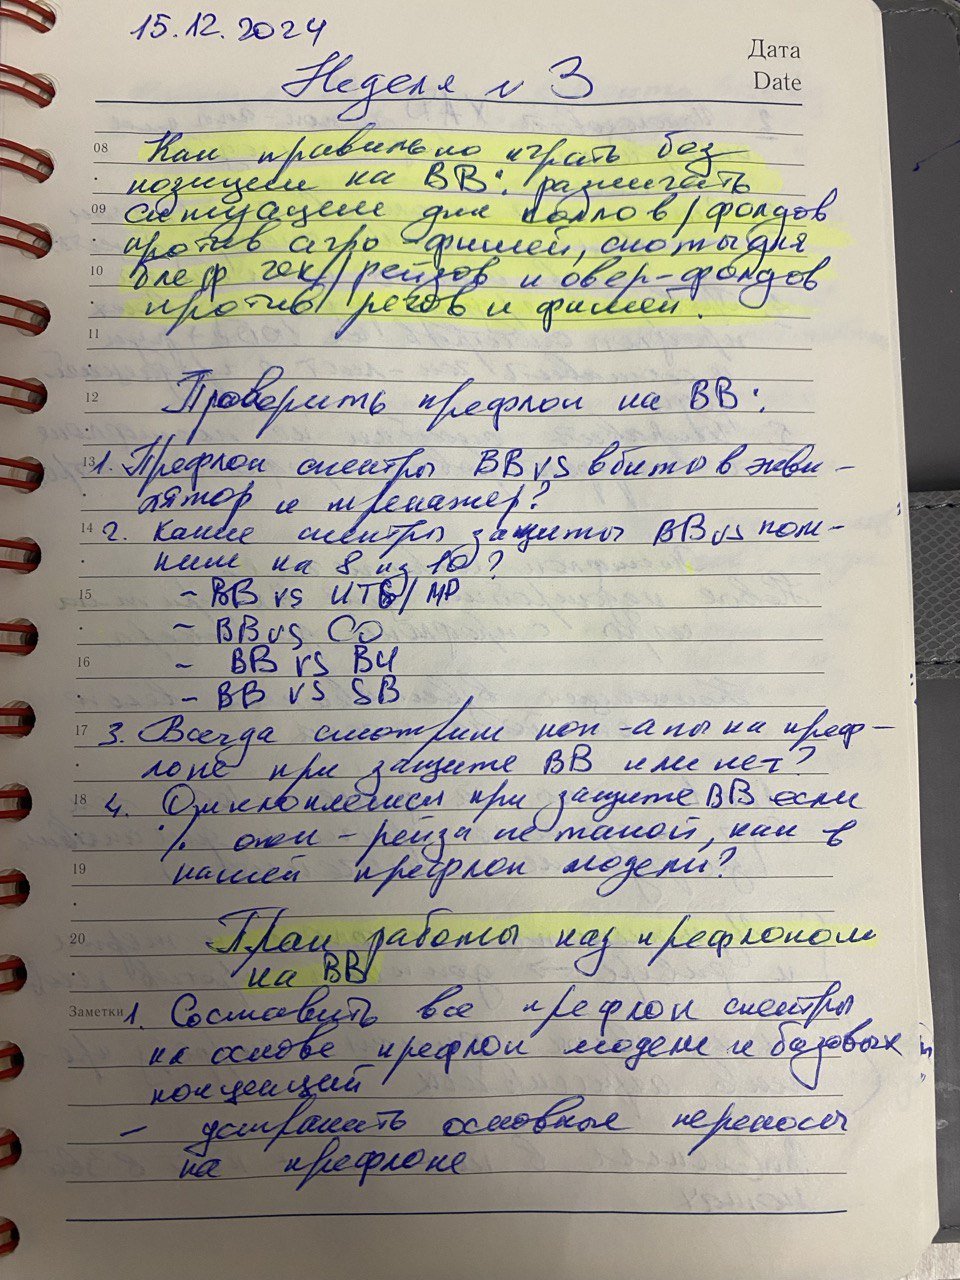 15.12.2024
Дата
Date
Неделя № 3
08
Как правильно играть без
позиции на BB: различать
09
ситуации для коллов/фолдов
против агро-фишей, споты для
10
блеф чек/рейзов и овер-фолдов
против регов и фишей.
11
12
Проверить префлоп на BB:
13
1. Префлоп спектры BB vs вбиты в экви-
лятор и тренажер?
14
2. Какие спектры защиты BB vs пом-
ним на 8 из 10?
15
- BB vs UTG/MP
- BB vs CO
16
- BB vs BU
- BB vs SB
17
3. Всегда смотрим поп-апы на преф-
лопе при защите BB или нет?
18
4. Отклоняемся при защите BB если
% опен-рейза не такой, как в
19
нашей префлоп модели?
20
План работы над префлопом
на BB
Заметки
1. Составить все префлоп спектры
на основе префлоп модели и базовых
концепций
- устранить основные переносы
на префлопе